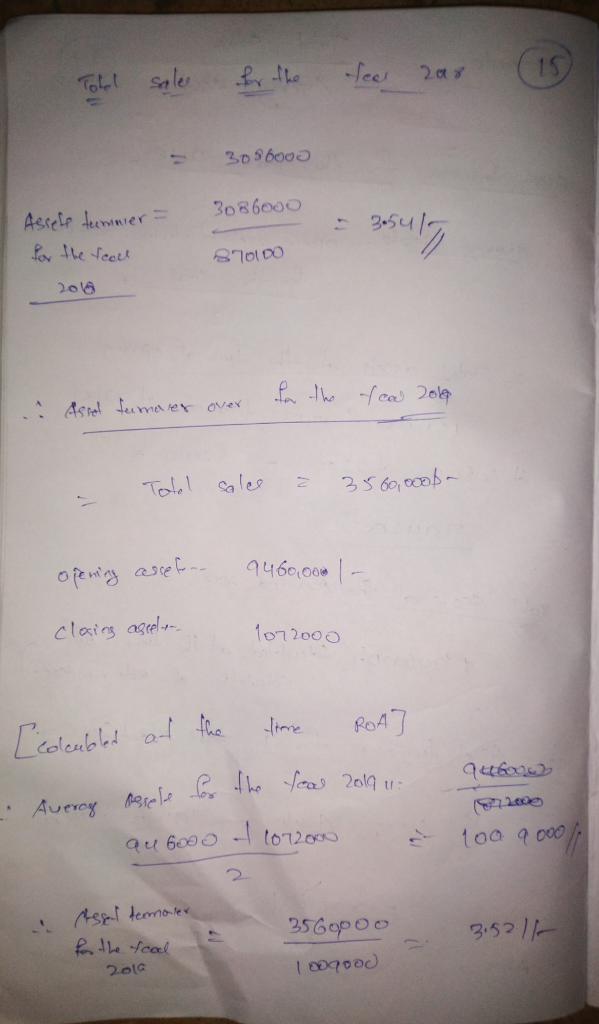 Total sales for the Year 2018 15
= 3086000
Assets turnover = 3086000 / 870100 = 3.54/-
for the Year
2018
∴ Asset turnover over for the Year 2019
= Total sales = 3560,000/-
opening assets -- 9460,000/-
Closing assets -- 1072000
[calculated at the time ROA]
∴ Average Assets for the Year 2019 is:
946000 + 1072000 = 1009000/-
2
∴ Asset turnover
for the Year = 3560000 / 1009000 = 3.52//-
2019